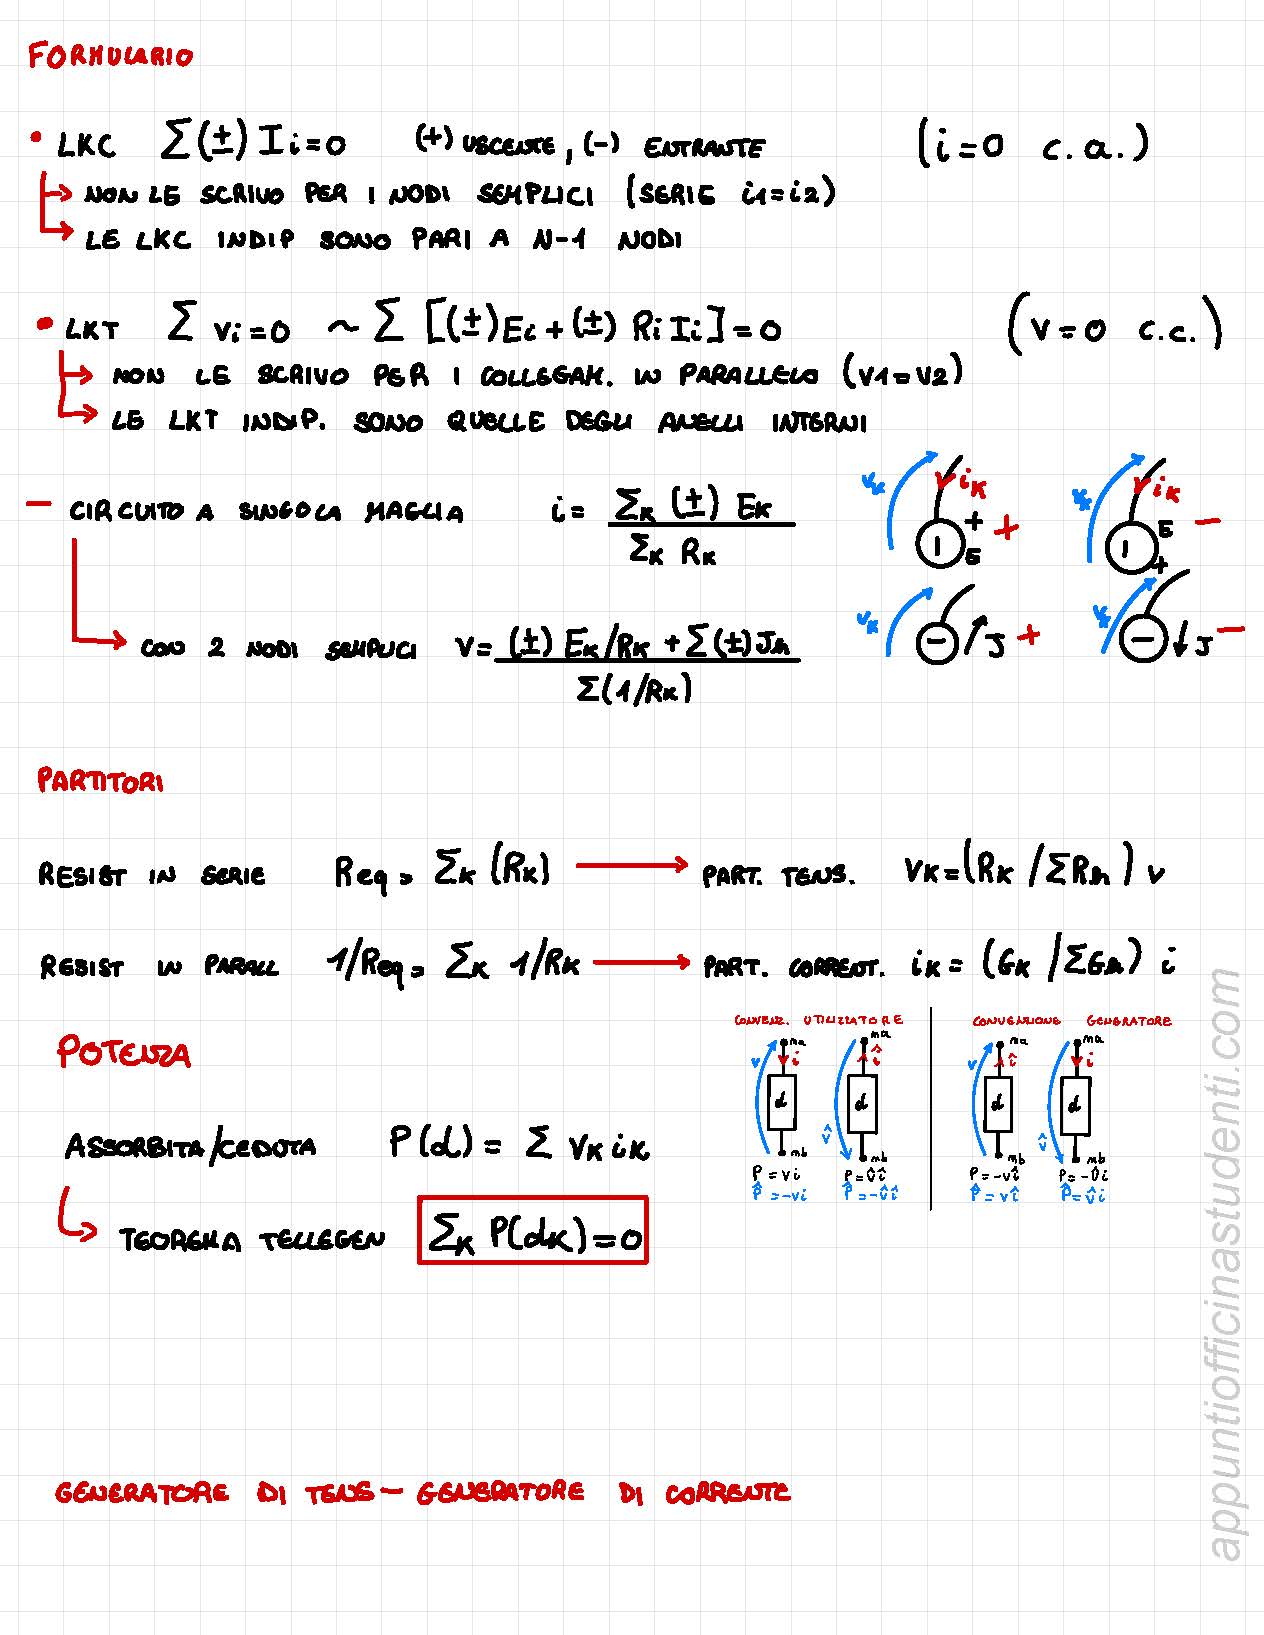 FORMULARIO
• LKC Σ(±) Ii=0 (+) USCENTE, (-) ENTRANTE (i=0 c.a.)
→ NON LE SCRIVO PER I NODI SEMPLICI (SERIE i1=i2)
→ LE LKC INDIP SONO PARI A N-1 NODI
• LKT Σ Vi=0 ~ Σ [(±)Ei+(±) Ri Ii]=0 (V=0 c.c.)
→ NON LE SCRIVO PER I COLLEGAM. IN PARALLELO (V1=V2)
→ LE LKT INDIP. SONO QUELLE DEGLI ANELLI INTERNI
- CIRCUITO A SINGOLA MAGLIA i= Σk (±) Ek / Σk Rk
Vk iK + E +
Vk iK E + -
→ CON 2 NODI SEMPLICI V= (±) Ek/Rk + Σ(±)Jh / Σ(1/Rk)
Vk J +
Vk J -
PARTITORI
RESIST IN SERIE Req= Σk (Rk) → PART. TENS. Vk=(Rk /ΣRh) v
RESIST IN PARALL 1/Req= Σk 1/Rk → PART. CORRENT. ik= (Gk /ΣGh) i
POTENZA
CONVENZ. UTILIZZATORE
CONVENZIONE GENERATORE
na na na na
v i î v î i
d d d d
v̂ v̂
mb mb mb mb
P=vi P=v̂î P=-vî P=-v̂i
P̂=-vi P̂=-v̂î P̂=vî P̂=v̂i
ASSORBITA/CEDUTA P(d)= Σ Vk ik
→ TEOREMA TELLEGEN Σk P(dk)=0
GENERATORE DI TENS - GENERATORE DI CORRENTE
appuntiofficinastudenti.com